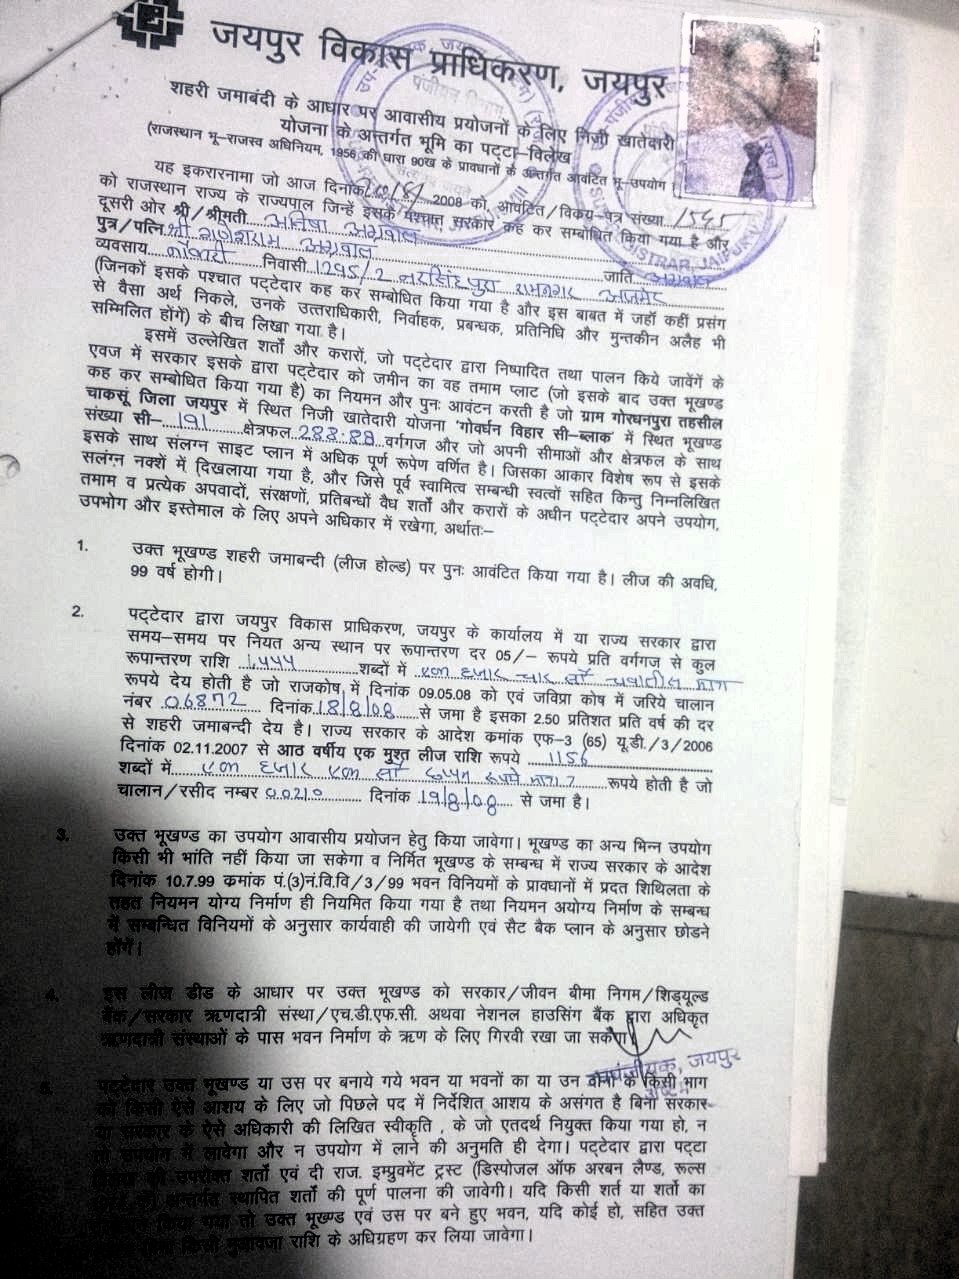 जयपुर विकास प्राधिकरण, जयपुर
शहरी जमाबंदी के आधार पर आवासीय प्रयोजनों के लिए निजी खातेदारी
योजना के अन्तर्गत भूमि का पट्टा-विलेख
(राजस्थान भू-राजस्व अधिनियम, 1956 की धारा 90ख के प्रावधानों के अन्तर्गत आवंटित भू-उपयोग
यह इकरारनामा जो आज दिनांक 2008 को, आवंटित/विक्रय-पत्र संख्या 1545
को राजस्थान राज्य के राज्यपाल जिन्हें इसके पश्चात् सरकार कह कर सम्बोधित किया गया है और
दूसरी ओर श्री/श्रीमती अनिषा अग्रवाल
पुत्र/पत्नि श्री गणेशराम अग्रवाल जाति अग्रवाल
व्यवसाय नौकरी निवासी 1295/2 नरसिंहपुरा रामनगर अजमेर
(जिनको इसके पश्चात पट्टेदार कह कर सम्बोधित किया गया है और इस बाबत में जहाँ कहीं प्रसंग
से वैसा अर्थ निकले, उनके उत्तराधिकारी, निर्वाहक, प्रबन्धक, प्रतिनिधि और मुन्तकीन अलैह भी
सम्मिलित होंगें) के बीच लिखा गया है।
इसमें उल्लेखित शर्तों और करारों, जो पट्टेदार द्वारा निष्पादित तथा पालन किये जावेंगें के
एवज में सरकार इसके द्वारा पट्टेदार को जमीन का वह तमाम प्लाट (जो इसके बाद उक्त भूखण्ड
कह कर सम्बोधित किया गया है) का नियमन और पुनः आवंटन करती है जो ग्राम गोरधनपुरा तहसील
चाकसूं जिला जयपुर में स्थित निजी खातेदारी योजना 'गोवर्धन विहार सी-ब्लाक' में स्थित भूखण्ड
संख्या सी- 191 क्षेत्रफल 288.88 वर्गगज और जो अपनी सीमाओं और क्षेत्रफल के साथ
इसके साथ संलग्न साइट प्लान में अधिक पूर्ण रूपेण वर्णित है। जिसका आकार विशेष रूप से इसके
सलंग्न नक्शें में दिखलाया गया है, और जिसे पूर्व स्वामित्व सम्बन्धी स्वत्वों सहित किन्तु निम्नलिखित
तमाम व प्रत्येक अपवादों, संरक्षणों, प्रतिबन्धों वैध शर्तों और करारों के अधीन पट्टेदार अपने उपयोग,
उपभोग और इस्तेमाल के लिए अपने अधिकार में रखेगा, अर्थातः-
1. उक्त भूखण्ड शहरी जमाबन्दी (लीज होल्ड) पर पुनः आवंटित किया गया है। लीज की अवधि,
99 वर्ष होगी।
2. पट्टेदार द्वारा जयपुर विकास प्राधिकरण, जयपुर के कार्यालय में या राज्य सरकार द्वारा
समय-समय पर नियत अन्य स्थान पर रूपान्तरण दर 05/- रूपये प्रति वर्गगज से कुल
रूपांतरण राशि 1,444 शब्दों में एक हजार चार सौ चवालीस मात्र
रूपये देय होती है जो राजकोष में दिनांक 09.05.08 को एवं जविप्रा कोष में जरिये चालान
नंबर 06872 दिनांक 18/8/08 से जमा है इसका 2.50 प्रतिशत प्रति वर्ष की दर
से शहरी जमाबन्दी देय है। राज्य सरकार के आदेश क्रमांक एफ-3 (65) यू.डी./3/2006
दिनांक 02.11.2007 से आठ वर्षीय एक मुश्त लीज राशि रूपये 1156
शब्दों में एक हजार एक सौ छप्पन रूपये मात्र रूपये होती है जो
चालान/रसीद नम्बर 00210 दिनांक 19/8/08 से जमा है।
3. उक्त भूखण्ड का उपयोग आवासीय प्रयोजन हेतु किया जावेगा। भूखण्ड का अन्य भिन्न उपयोग
किसी भी भांति नहीं किया जा सकेगा व निर्मित भूखण्ड के सम्बन्ध में राज्य सरकार के आदेश
दिनांक 10.7.99 क्रमांक पं.(3)नं.वि.वि/3/99 भवन विनियमों के प्रावधानों में प्रदत शिथिलता के
तहत नियमन योग्य निर्माण ही नियमित किया गया है तथा नियमन अयोग्य निर्माण के सम्बन्ध
में सम्बन्धित विनियमों के अनुसार कार्यवाही की जायेगी एवं सैट बैक प्लान के अनुसार छोडने
होंगें।
4. इस लीज डीड के आधार पर उक्त भूखण्ड को सरकार/जीवन बीमा निगम/शिड्यूल्ड
बैंक/सरकार ऋणदात्री संस्था/एच.डी.एफ.सी. अथवा नेशनल हाउसिंग बैंक द्वारा अधिकृत
ऋणदात्री संस्थाओं के पास भवन निर्माण के ऋण के लिए गिरवी रखा जा सकेगा।
उपपंजीयक, जयपुर
5. पट्टेदार उक्त भूखण्ड या उस पर बनाये गये भवन या भवनों का या उन दोनों के किसी भाग
को किसी ऐसे आशय के लिए जो पिछले पद में निर्देशित आशय के असंगत है बिना सरकार
या सरकार के ऐसे अधिकारी की लिखित स्वीकृति , के जो एतदर्थ नियुक्त किया गया हो, न
तो उपयोग में लावेगा और न उपयोग में लाने की अनुमति ही देगा। पट्टेदार द्वारा पट्टा
की उपरोक्त शर्तों एवं दी राज. इम्प्रुवमेंट ट्रस्ट (डिस्पोजल ऑफ अरबन लैण्ड, रूल्स
अन्तर्गत स्थापित शर्तों की पूर्ण पालना की जावेगी। यदि किसी शर्त या शर्तो का
किया गया तो उक्त भूखण्ड एवं उस पर बने हुए भवन, यदि कोई हो, सहित उक्त
किसी मुआवजा राशि के अधिग्रहण कर लिया जावेगा।